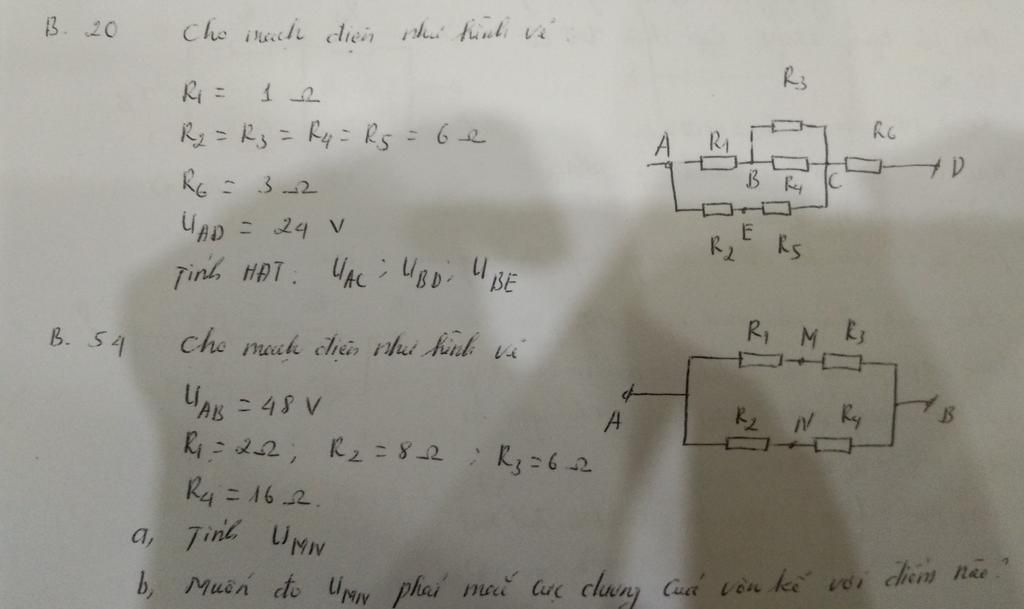 B. 20 Cho mạch điện như hình vẽ.
R1 = 1 Ω
R2 = R3 = R4 = R5 = 6 Ω
R6 = 3 Ω
UAD = 24 V
Tính HĐT: UAC ; UBD ; UBE
R3
A R1 B R4 C R6 D
R2 E R5
B. 54 Cho mạch điện như hình vẽ
UAB = 48 V
R1 = 2Ω ; R2 = 8Ω ; R3 = 6 Ω
R4 = 16 Ω.
a, Tính UMN
b, Muốn đo UMN phải mắc cực dương của vôn kế với điểm nào?
R1 M R3
A B
R2 N R4